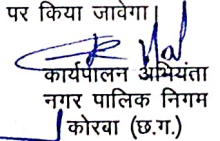 पर किया जावेगा।
कार्यपालन अभियंता
नगर पालिक निगम
कोरबा (छ.ग.)